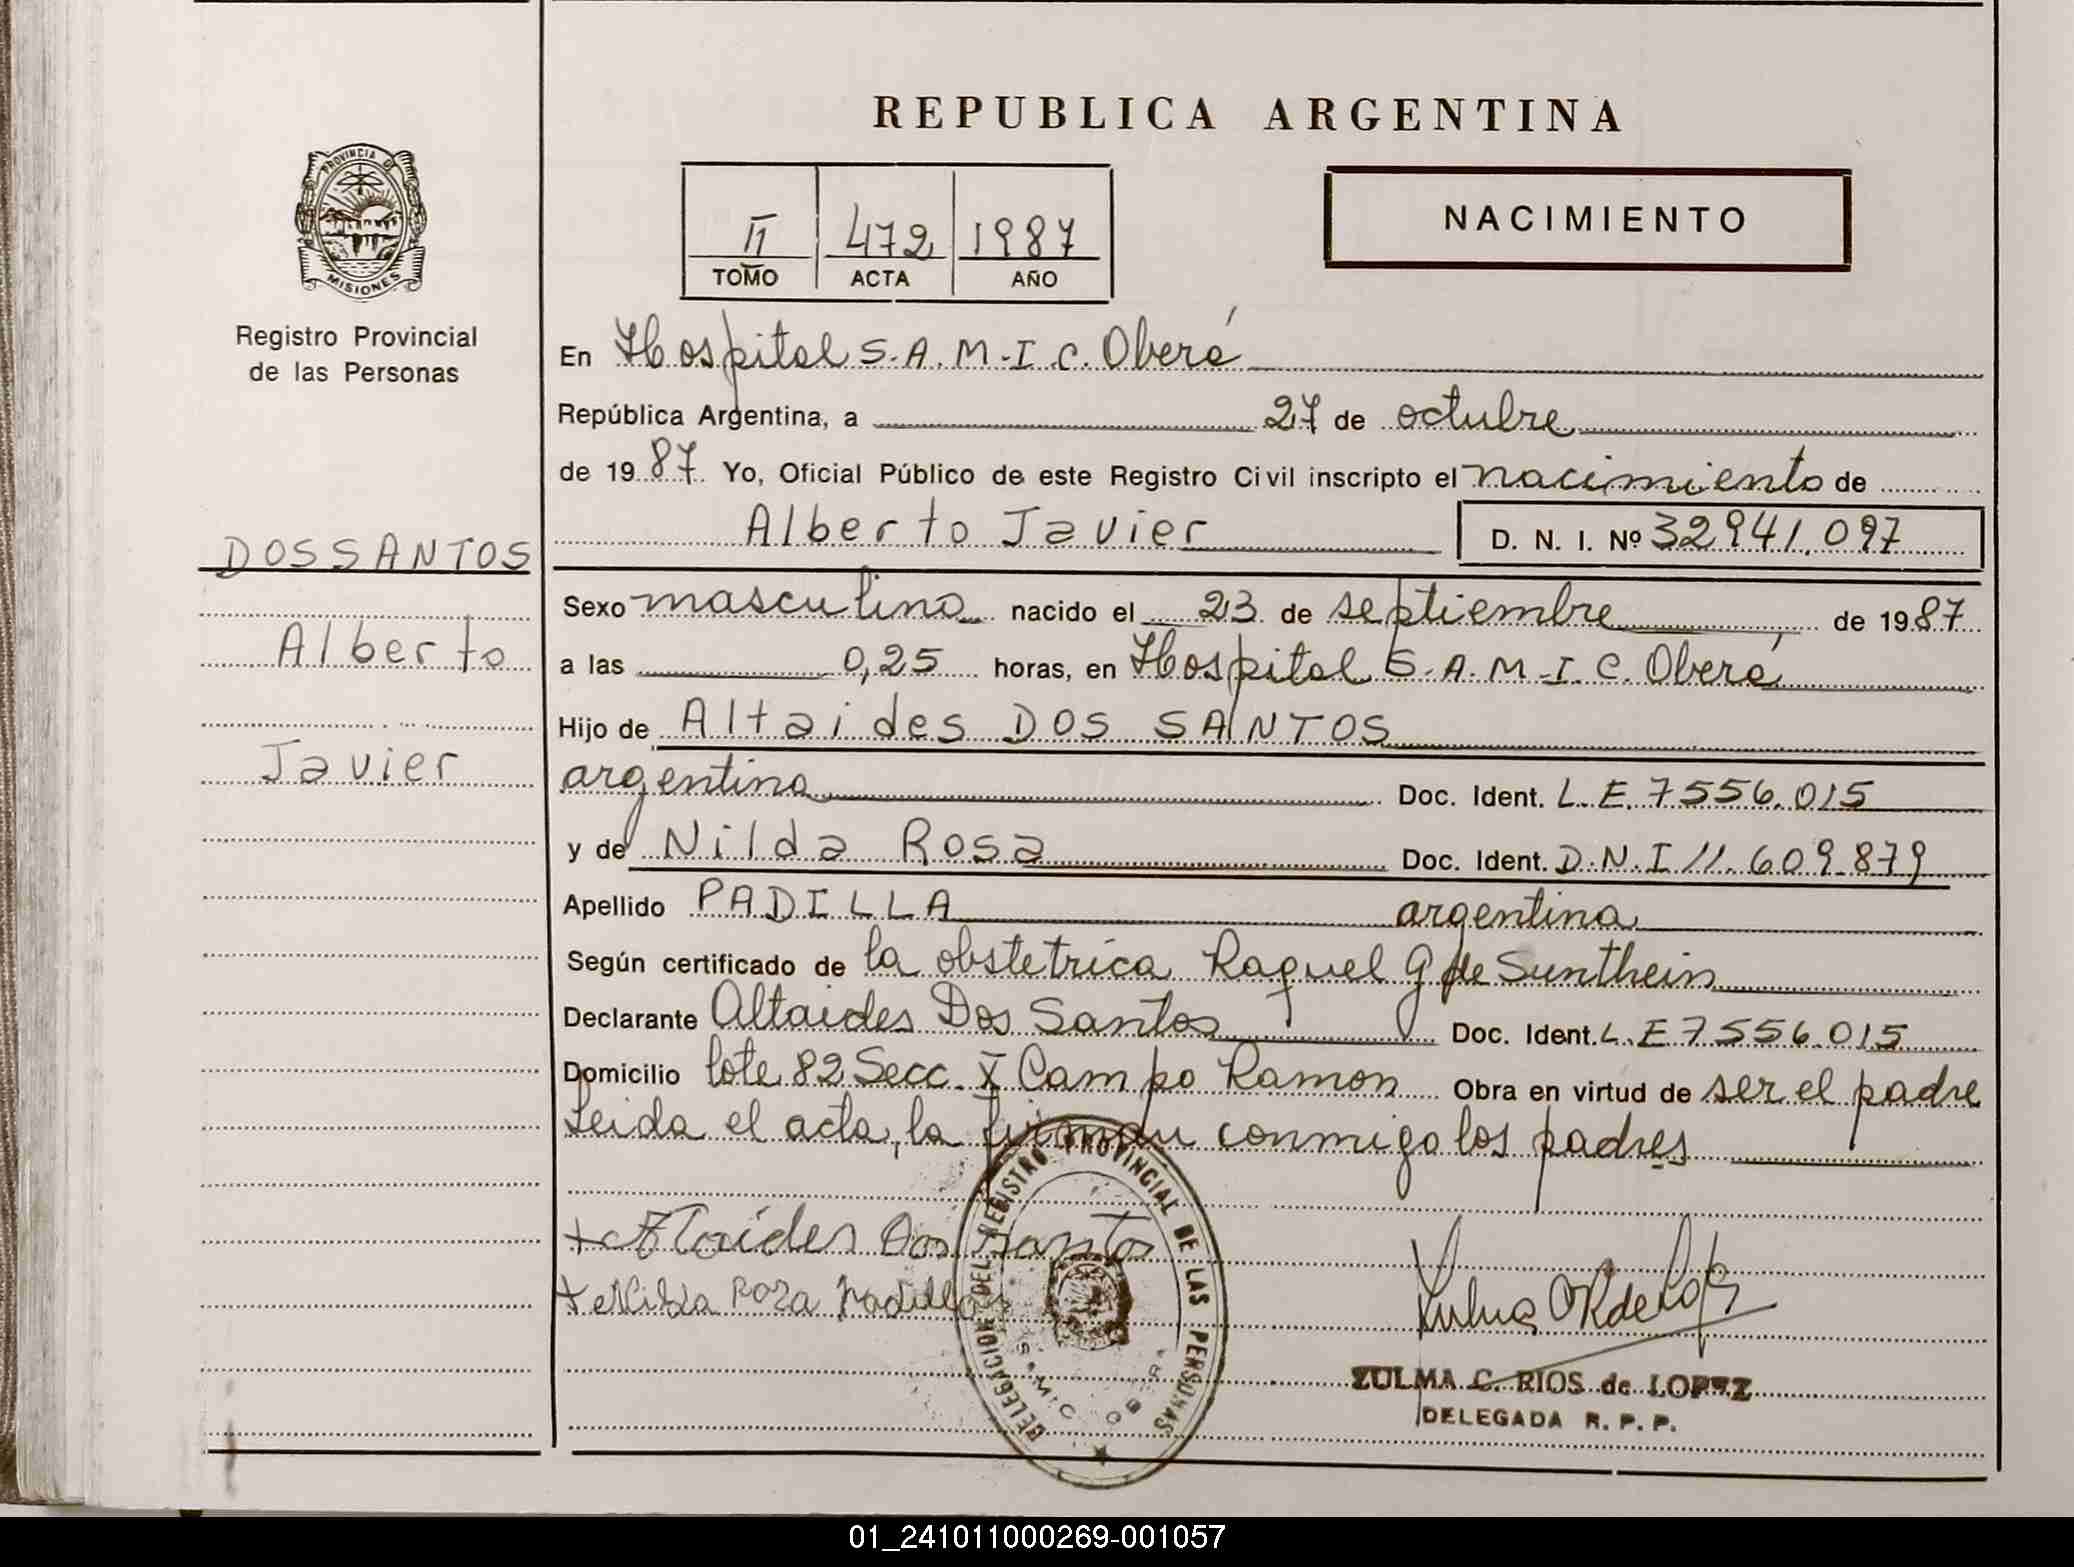 REPUBLICA ARGENTINA
PROVINCIA D
MISIONES
Registro Provincial
de las Personas
II 472 1987
TOMO ACTA AÑO
NACIMIENTO
En Hospital S.A.M.I.C. Oberá
República Argentina, a 27 de octubre
de 1987 Yo, Oficial Público de este Registro Civil inscripto el nacimiento de
Alberto Javier D. N. I. Nº 32941.097
DOS SANTOS
Alberto
Javier
Sexo masculino nacido el 23 de septiembre de 1987
a las 0,25 horas, en Hospital S.A.M.I.C. Oberá
Hijo de Altaides DOS SANTOS
argentina Doc. Ident. L.E. 7556.015
y de Nilda Rosa Doc. Ident. D.N.I 11.609.879
Apellido PADILLA argentina
Según certificado de la obstetrica Raquel G de Sunthein
Declarante Altaides Dos Santos Doc. Ident. L.E 7556.015
Domicilio lote 82 Secc. X Campo Ramon Obra en virtud de ser el padre
Leida el acta, la firman conmigo los padres
Altaides Dos Santos
Nilda Rosa Padilla
DELEGACION DEL REGISTRO PROVINCIAL DE LAS PERSONAS
SAMIC OBERA
ZULMA C. RIOS de LOPEZ
DELEGADA R. P. P.
01_241011000269-001057